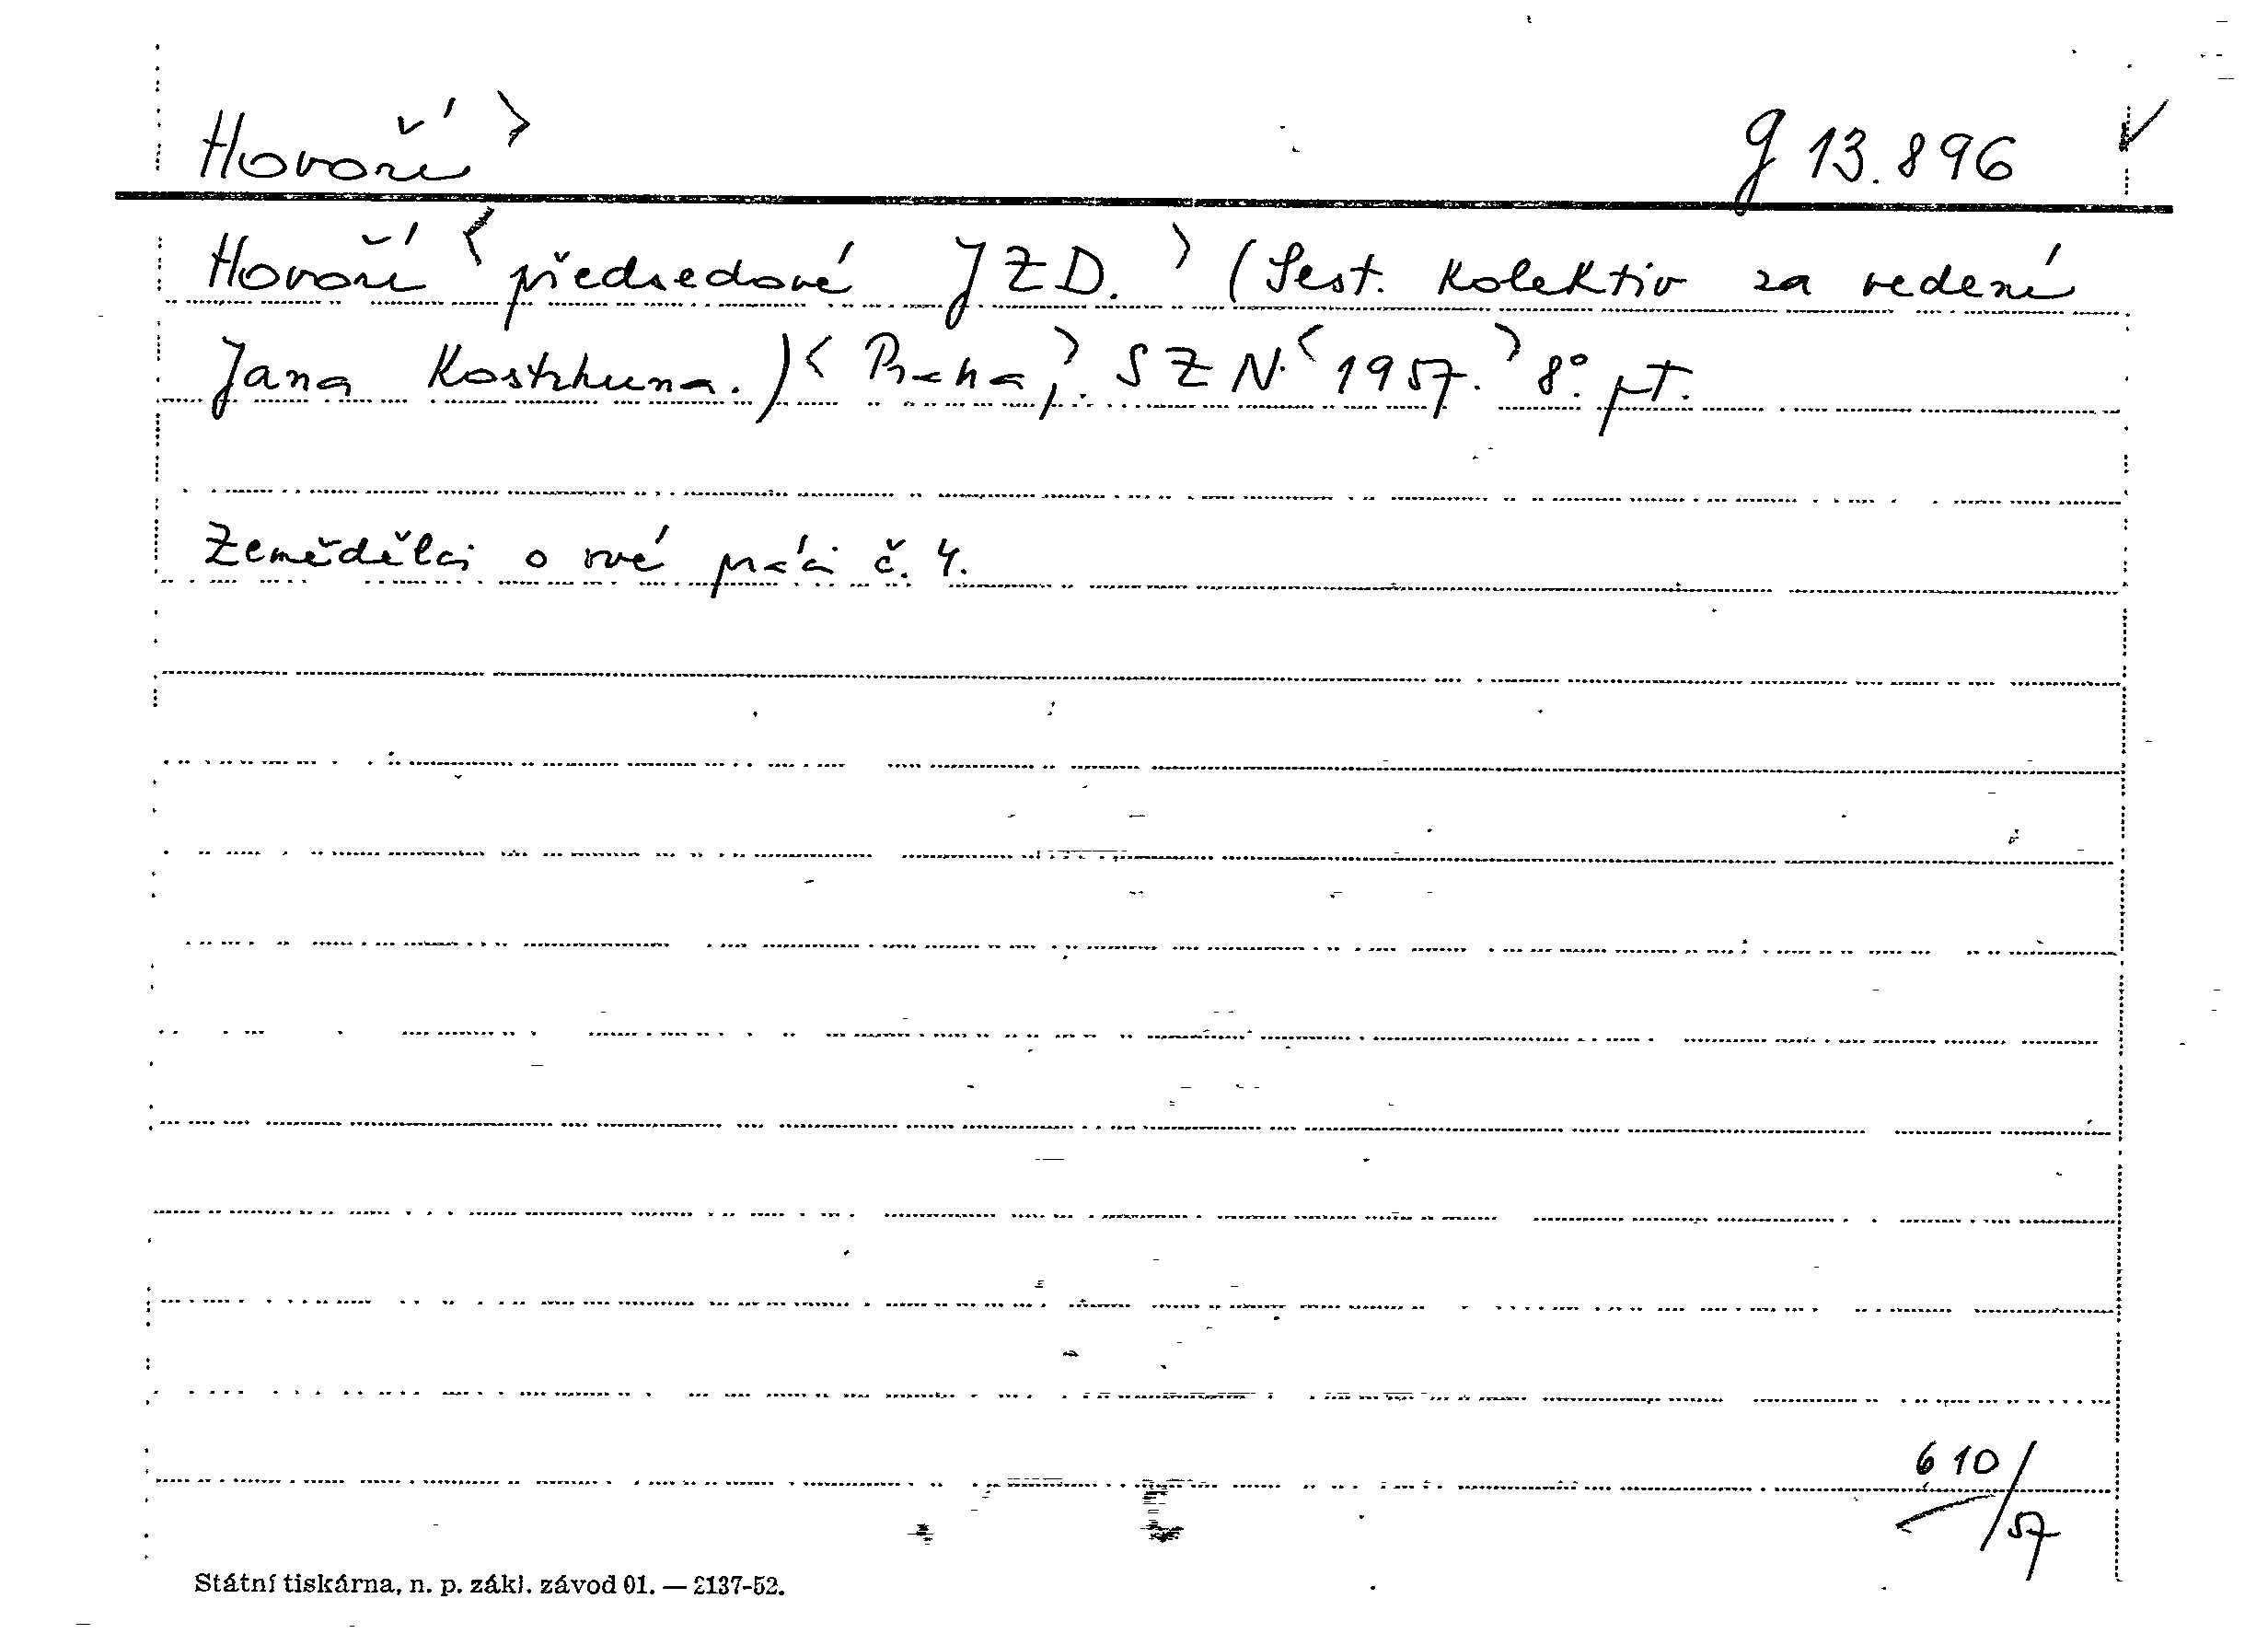 Hovoří > g 13.896
Hovoří < předsedové JZD. > (Sest. kolektiv za vedení
Jana Kostrhuna.) < Praha, > SZN. < 1957. > 8°. pt.
Zemědělci o své práci č. 4.
610/57
Státní tiskárna, n. p. zákl. závod 01. — 2137-52.